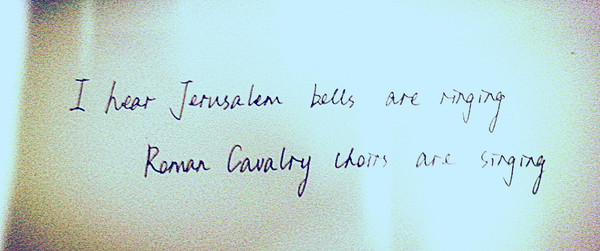 I hear Jerusalem bells are ringing
Roman Cavalry choirs are singing